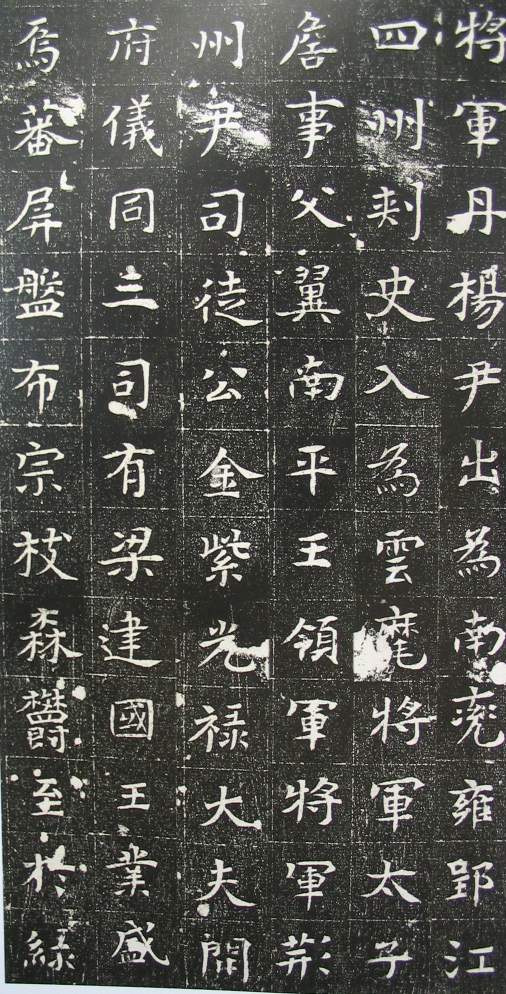 將軍丹楊尹出為南兗雍郢江
四州刺史入為雲麾將軍太子
詹事父翼南平王領軍將軍荊
州尹司徒公金紫光祿大夫開
府儀同三司有梁建國王業盛
焉蕃屏盤布宗枝森欝至於緑